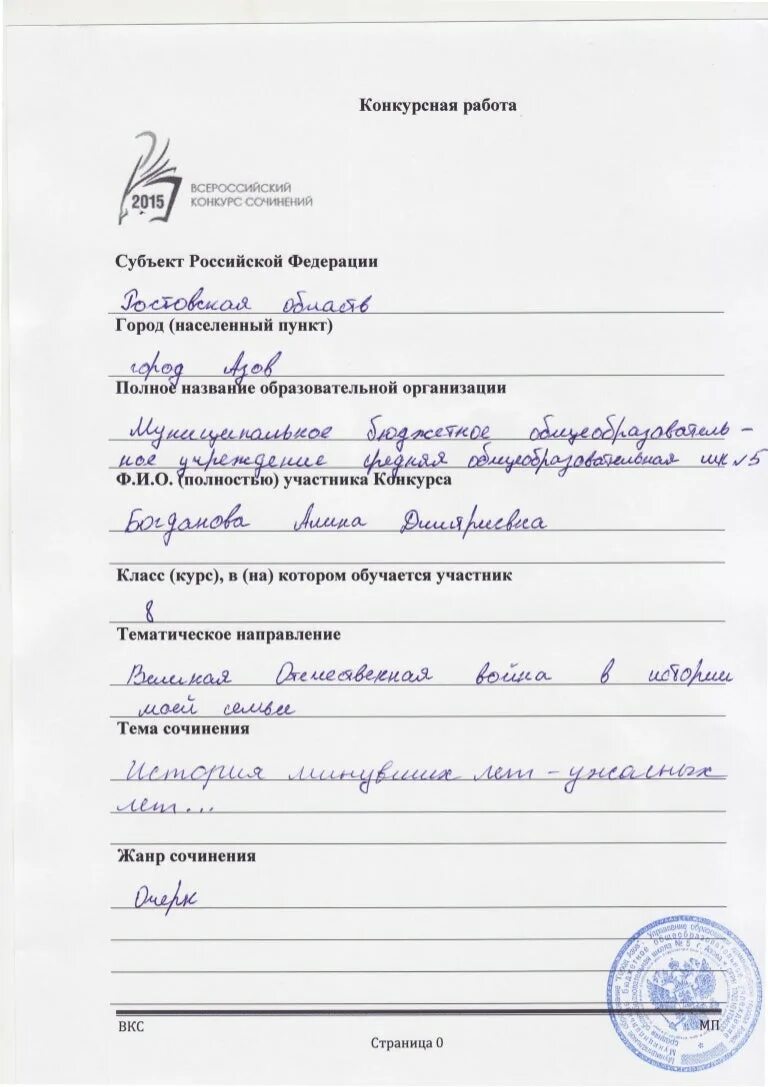 Конкурсная работа
2015
ВСЕРОССИЙСКИЙ
КОНКУРС СОЧИНЕНИЙ
Субъект Российской Федерации
Ростовская область
Город (населенный пункт)
город Азов
Полное название образовательной организации
Муниципальное бюджетное общеобразователь-
ное учреждение средняя общеобразовательная шк №5
Ф.И.О. (полностью) участника Конкурса
Богданова Алина Дмитриевна
Класс (курс), в (на) котором обучается участник
8
Тематическое направление
Великая Отечественная война в истории
моей семьи
Тема сочинения
История минувших лет - ужасных
лет...
Жанр сочинения
Очерк
ВКС
МП
Страница 0